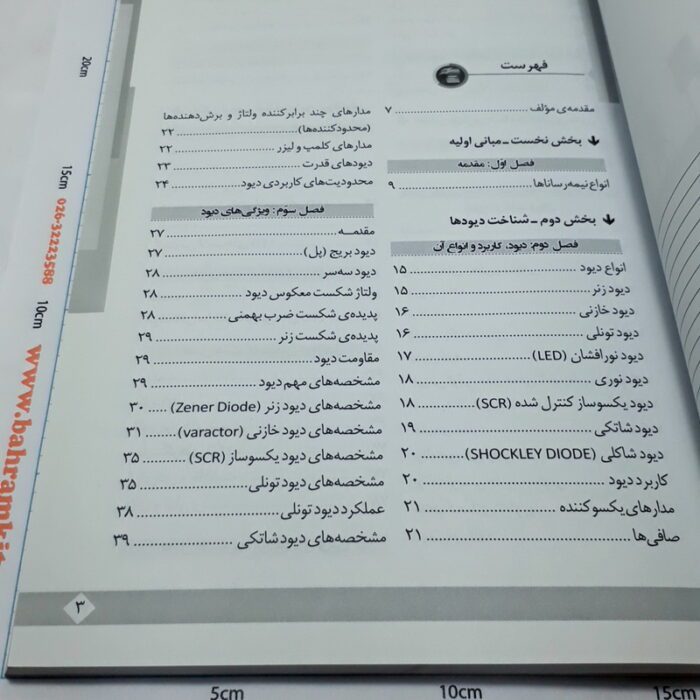 فهرست
مقدمه‌ی مؤلف ........ ۷
بخش نخست ـ مبانی اولیه
فصل اول: مقدمه
انواع نیمه‌رساناها ........ ۹
بخش دوم ـ شناخت دیودها
فصل دوم: دیود، کاربرد و انواع آن
انواع دیود ........ ۱۵
دیود زنر ........ ۱۵
دیود خازنی ........ ۱۶
دیود تونلی ........ ۱۶
دیود نورافشان (LED) ........ ۱۷
دیود نوری ........ ۱۸
دیود یکسوساز کنترل شده (SCR) ........ ۱۸
دیود شاتکی ........ ۱۹
دیود شاکلی (SHOCKLEY DIODE) ........ ۲۰
کاربرد دیود ........ ۲۰
مدارهای یکسو کننده ........ ۲۱
صافی‌ها ........ ۲۱
مدارهای چند برابرکننده ولتاژ و برش‌دهنده‌ها
(محدودکننده‌ها) ........ ۲۲
مدارهای کلمپ و لیزر ........ ۲۲
دیودهای قدرت ........ ۲۳
محدودیت‌های کاربردی دیود ........ ۲۴
فصل سوم: ویژگی‌های دیود
مقدمـه ........ ۲۷
دیود بریج (پل) ........ ۲۷
دیود سه‌سر ........ ۲۸
ولتاژ شکست معکوس دیود ........ ۲۸
پدیده‌ی شکست ضرب بهمنی ........ ۲۸
پدیده‌ی شکست زنر ........ ۲۹
مقاومت دیود ........ ۲۹
مشخصه‌های مهم دیود ........ ۲۹
مشخصه‌های دیود زنر (Zener Diode) ..... ۳۰
مشخصه‌های دیود خازنی (varactor) ........ ۳۱
مشخصه‌های دیود یکسوساز (SCR) ........ ۳۵
مشخصه‌های دیود تونلی ........ ۳۵
عملکرد دیود تونلی ........ ۳۸
مشخصه‌های دیود شاتکی ........ ۳۹
۳
20cm
15cm
026-32223588
10cm
www.bahramkit
5cm
10cm
15cm